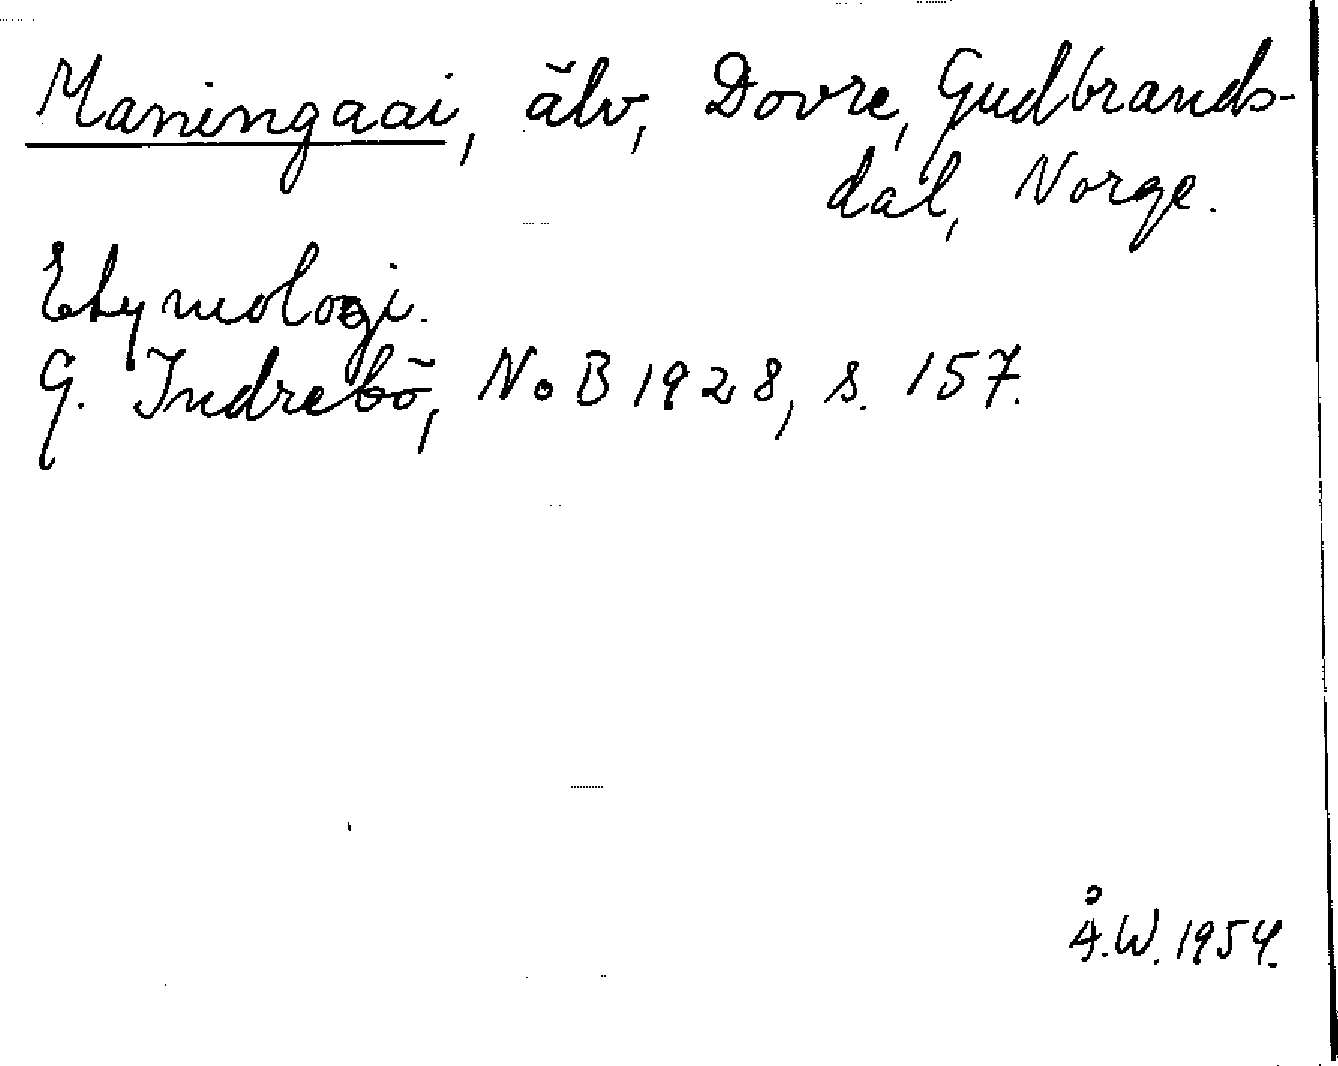 Maningaai, älv, Dovre, Gudbrands-
dal, Norge.
Etymologi.
G. Indrebö, NoB 1928, s. 157.
Å.W. 1954.